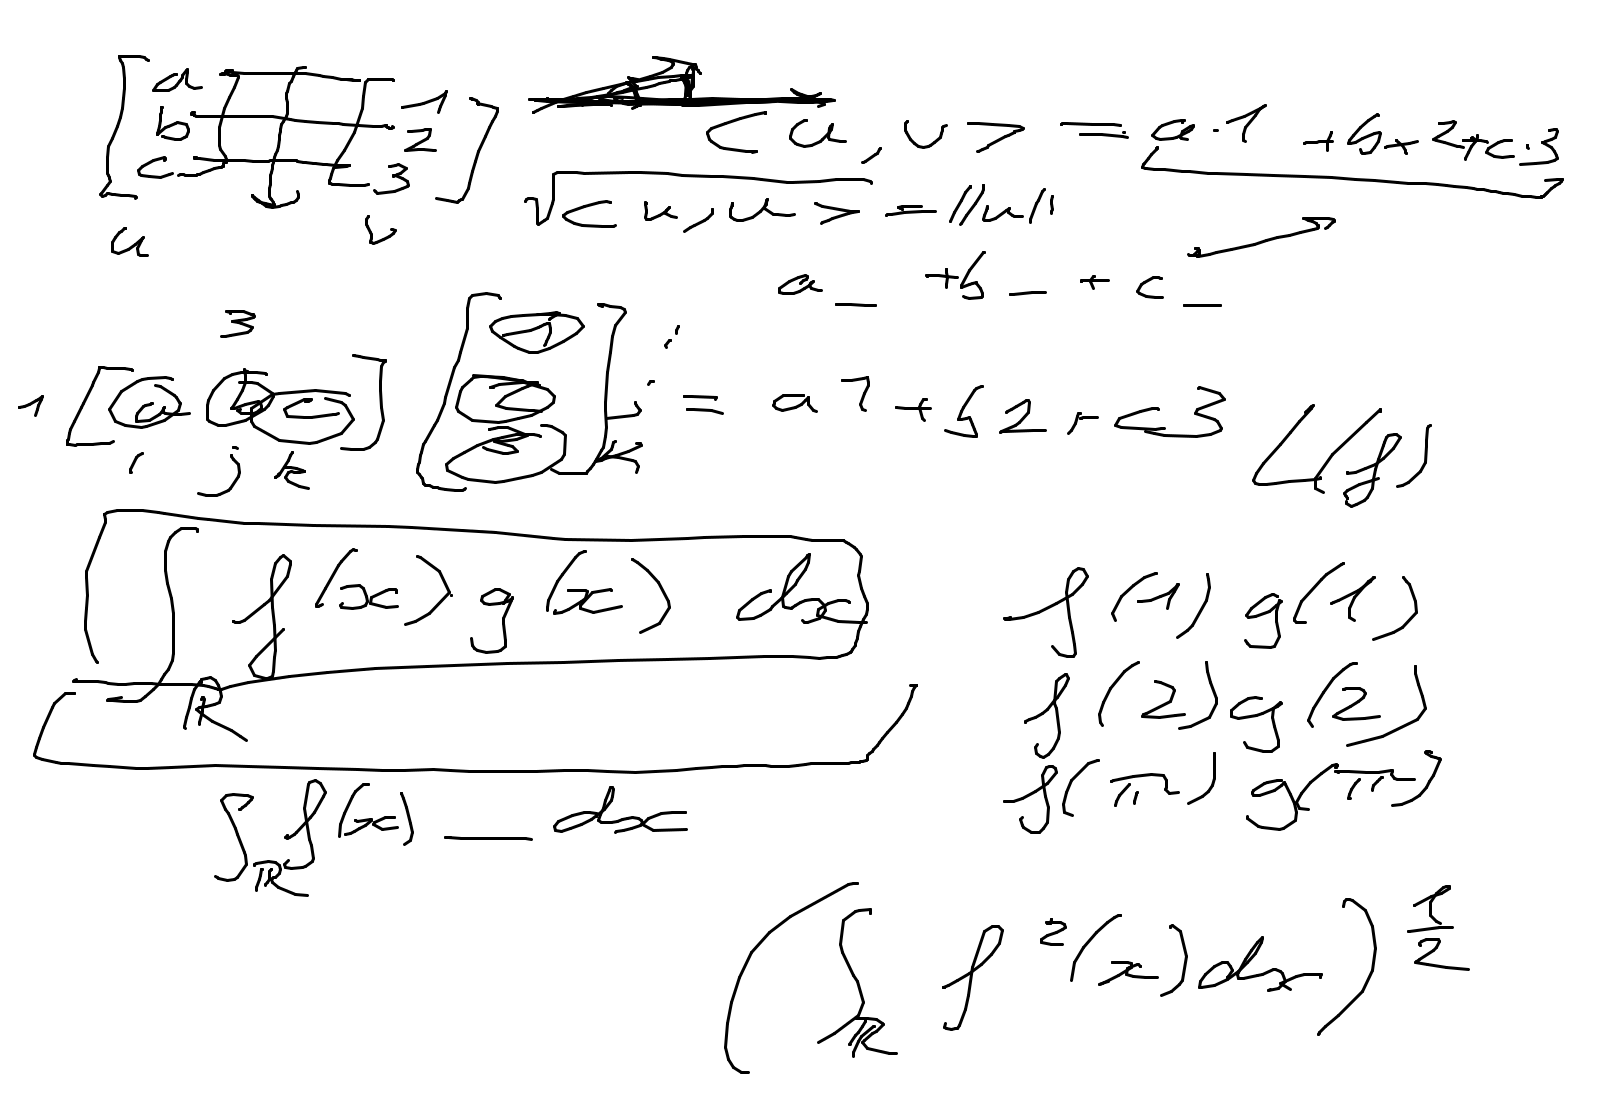 [a b c] [1 2 3]
u v
<u, v> = a·1 + b·2 + c·3
√<u, u> = ||u||
a _ + b _ + c _
3
1 [a b c] [1 2 3] = a1 + b2 + c3
i j k
i j k
L(f)
∫ℝ f(x) g(x) dx
f(1) g(1)
f(2) g(2)
f(π) g(π)
∫ℝ f(x) __ dx
(∫ℝ f²(x) dx)^(1/2)